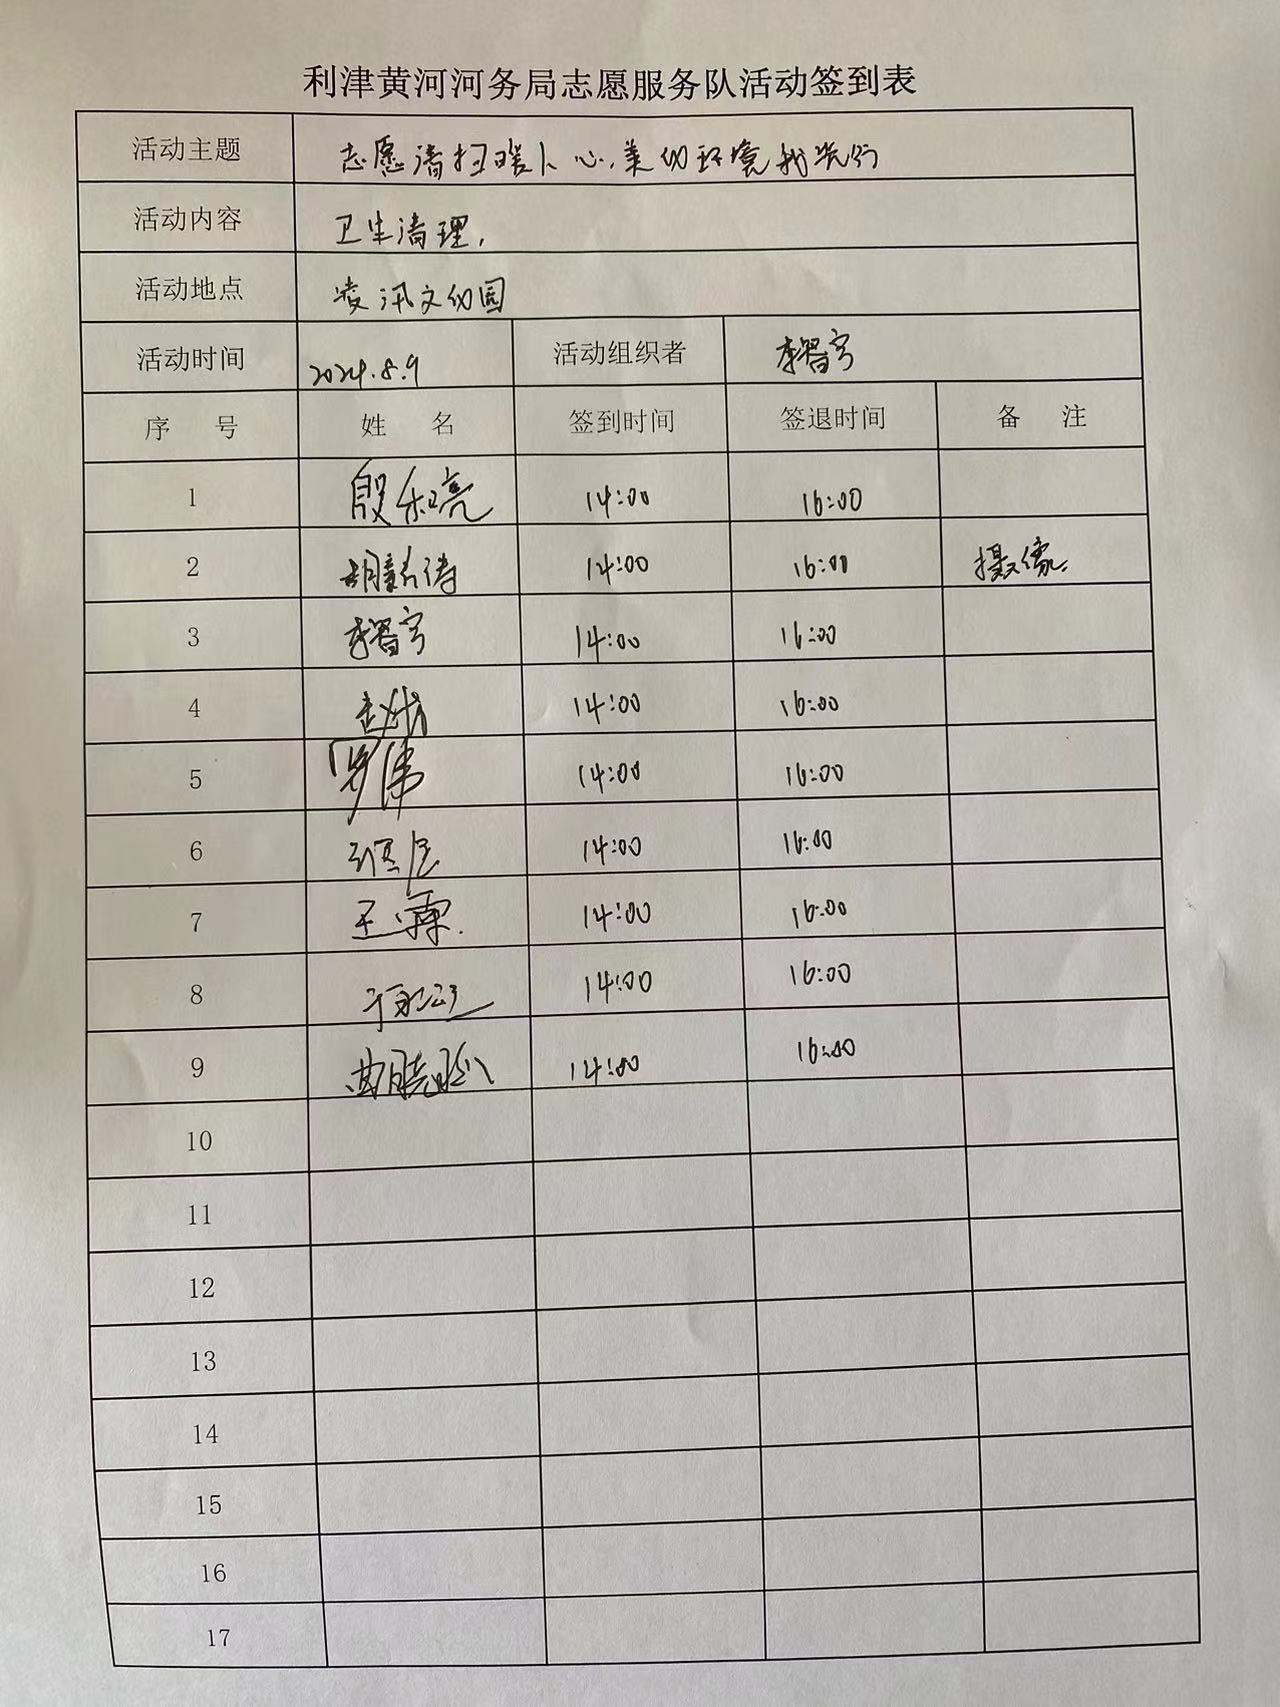 利津黄河河务局志愿服务队活动签到表
活动主题 志愿清扫暖人心,美的环境我先行
活动内容 卫生清理,
活动地点 凌汛文的园
活动时间 2024.8.9 活动组织者 李智宇
序 号 姓 名 签到时间 签退时间 备 注
1 殷乐亮 14:00 16:00
2 胡 诗 14:00 16:00 摄像
3 李智宇 14:00 16:00
4 赵 14:00 16:00
5 罗伟 14:00 16:00
6 14:00 16:00
7 王霖 14:00 16:00
8 14:00 16:00
9 曲晓 14:00 16:00
10
11
12
13
14
15
16
17